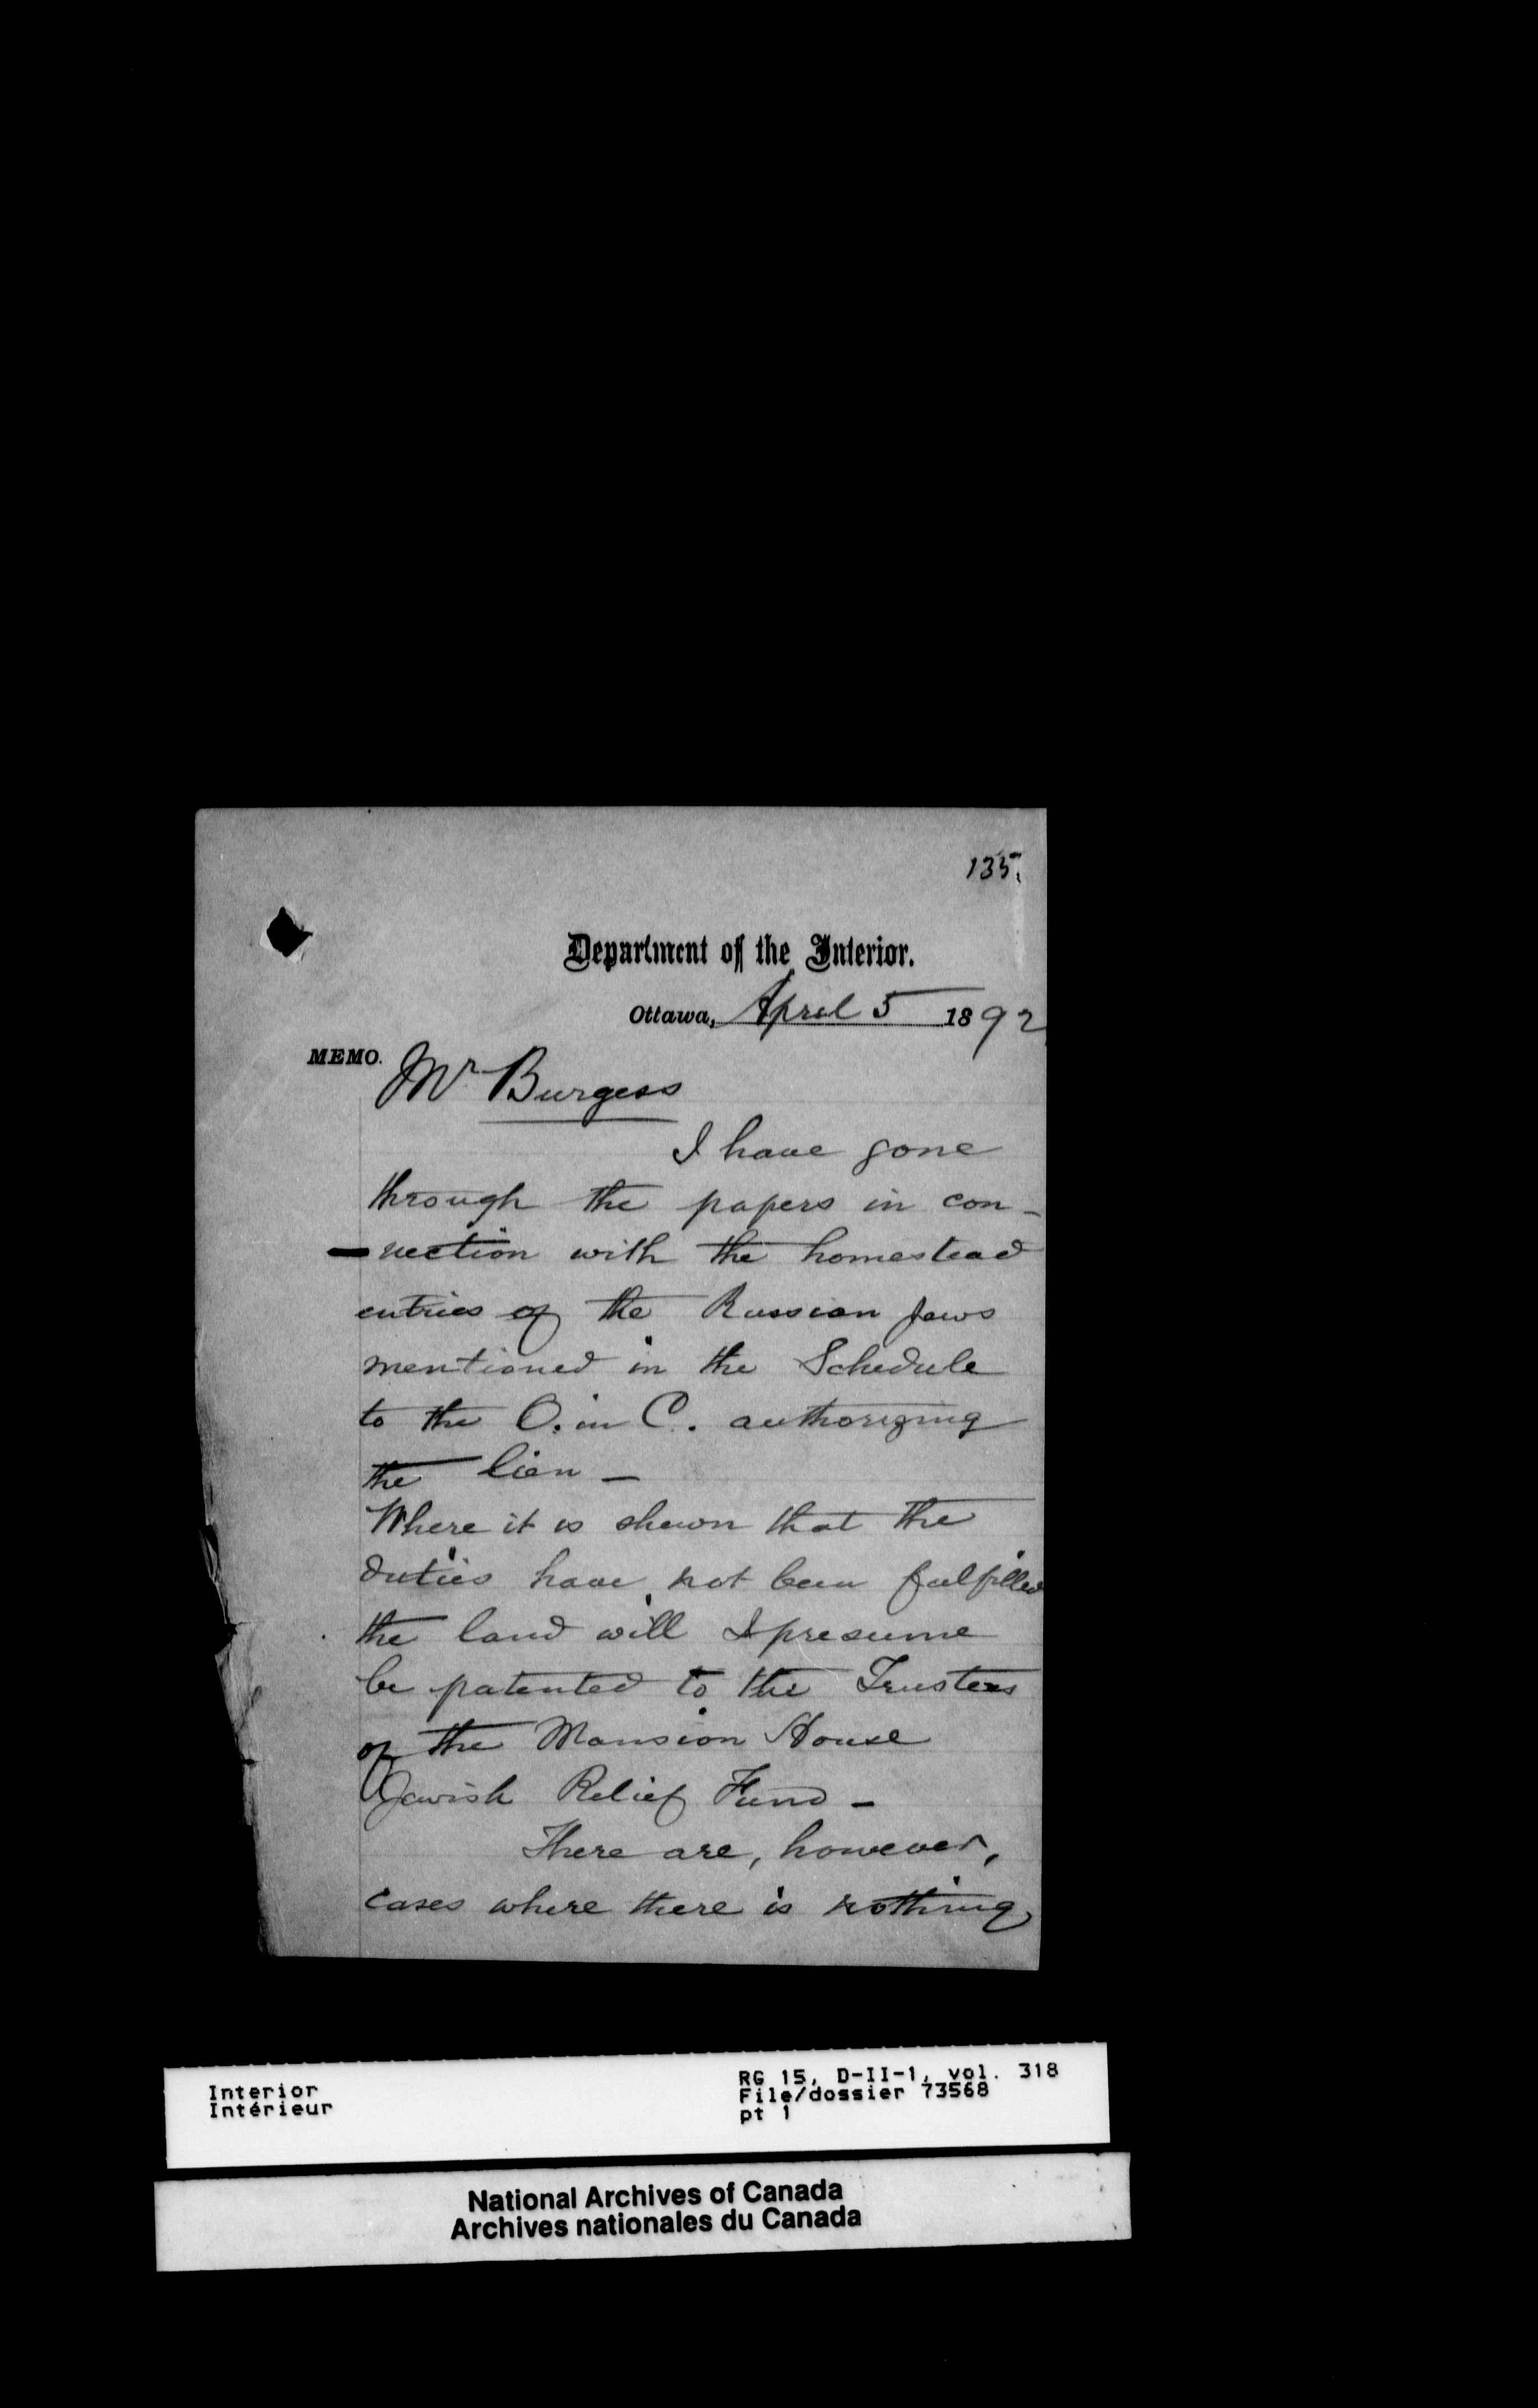 135.
Department of the Interior.
Ottawa, April 5 1892
MEMO.
Mr Burgess
I have gone
through the papers in con-
-nection with the homestead
entries of the Russian Jews
mentioned in the Schedule
to the O. in C. authorizing
the lien -
Where it is shewn that the
duties have not been fulfilled
the land will I presume
be patented to the Trustees
of the Mansion House
Jewish Relief Fund -
There are, however,
cases where there is nothing
Interior
Intérieur
RG 15, D-II-1, vol. 318
File/dossier 73568
pt 1
National Archives of Canada
Archives nationales du Canada